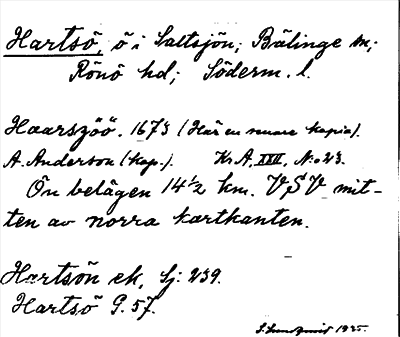 Hartsö, ö i Saltsjön; Bälinge sn;
Rönö hd; Söderm. l.
Haarszöö. 1673 (Här en senare kopia).
A. Anderson (kop.). Kr. A, XXII, No 23.
Ön belägen 14 1/2 km. VSV mit-
ten av norra kartkanten.
Hartsön ek, Sj: 239.
Hartsö G. 57.
1925.